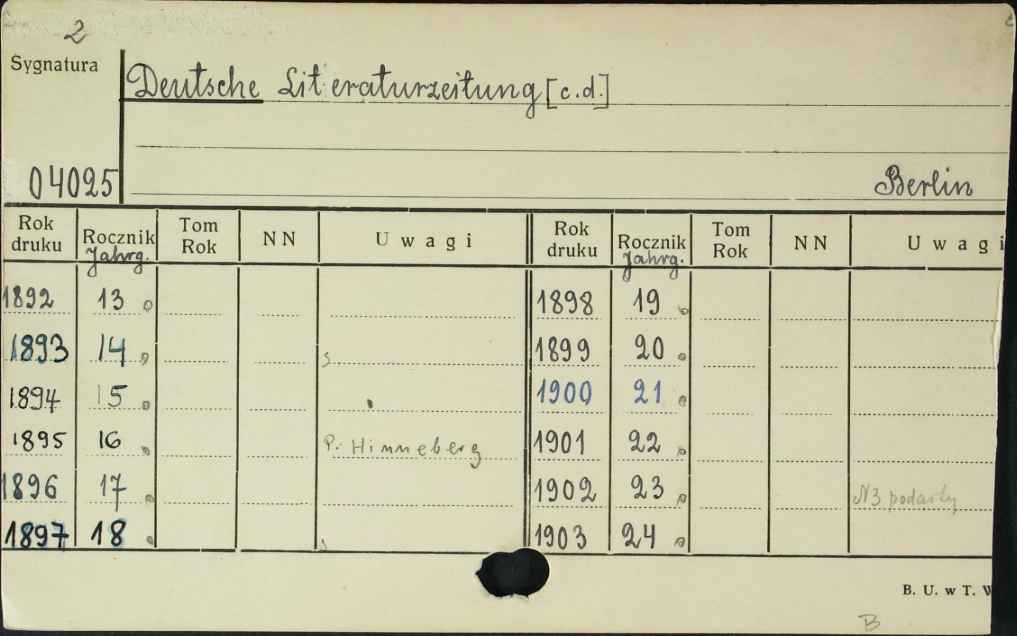 2
Sygnatura
Deutsche Literaturzeitung [c.d.]
04025
Berlin
Rok druku Rocznik Jahrg. Tom Rok NN Uwagi Rok druku Rocznik Jahrg. Tom Rok NN Uwagi
1892 13 1898 19
1893 14 1899 20
1894 15 1900 21
1895 16 P. Hinneberg 1901 22
1896 17 1902 23 N3 podarty
1897 18 1903 24
B. U. w T.
B